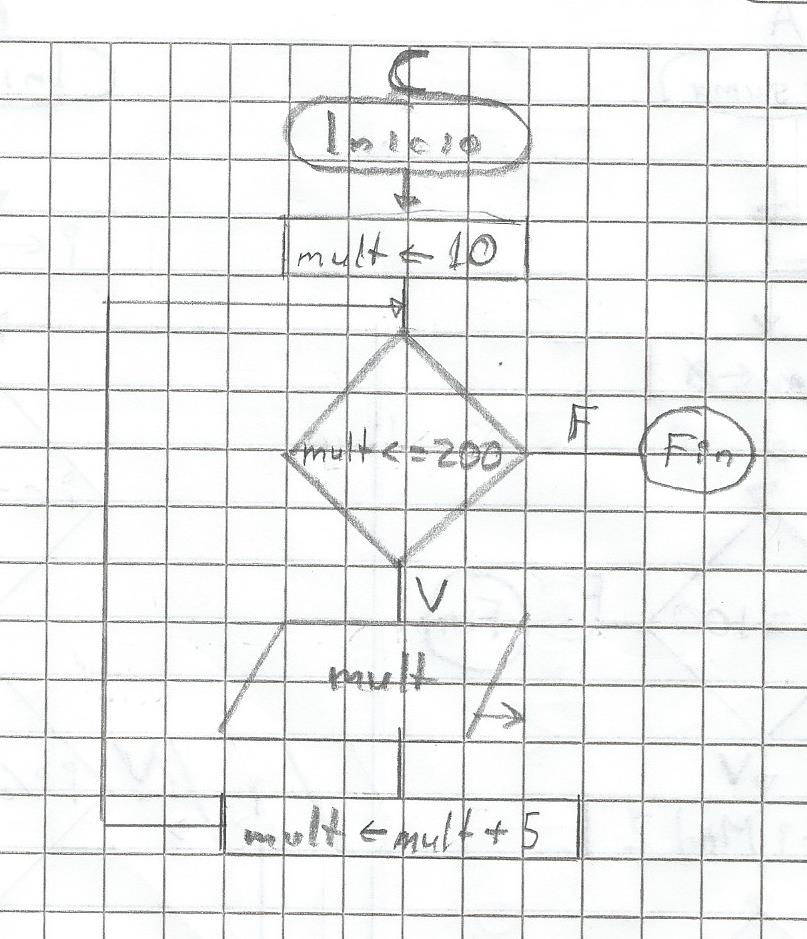 C
Inicio
mult ← 10
mult <= 200
F
Fin
V
mult
mult ← mult + 5